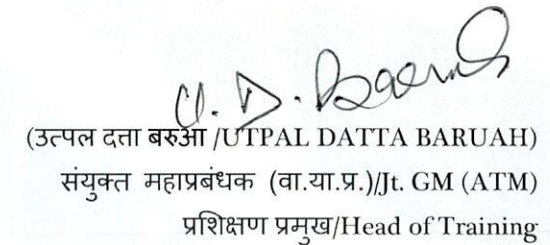 U. D. Baruah
(उत्पल दत्ता बरुआ /UTPAL DATTA BARUAH)
संयुक्त महाप्रबंधक (वा.या.प्र.)/Jt. GM (ATM)
प्रशिक्षण प्रमुख/Head of Training